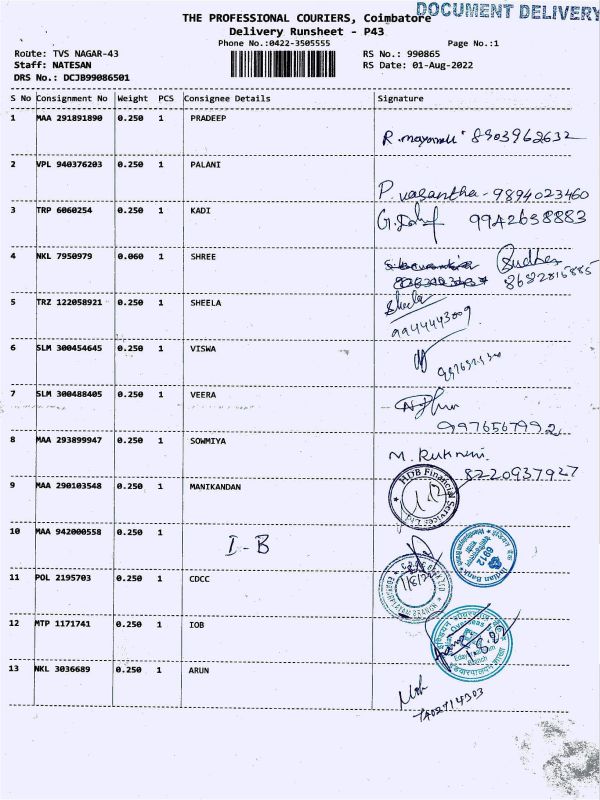 DOCUMENT DELIVERY
THE PROFESSIONAL COURIERS, Coimbatore
Delivery Runsheet - P43
Phone No.:0422-3505555 Page No.:1
Route: TVS NAGAR-43 RS No.: 990865
Staff: NATESAN RS Date: 01-Aug-2022
DRS No.: DCJB99086501
S No Consignment No Weight PCS Consignee Details Signature
1 MAA 291891890 0.250 1 PRADEEP
8903962632
2 VPL 940376203 0.250 1 PALANI
P. vasantha - 9894023460
3 TRP 6060254 0.250 1 KADI
9942638883
4 NKL 7950979 0.060 1 SHREE
8682815885
5 TRZ 122058921 0.250 1 SHEELA Sheela
9944443009
6 SLM 300454645 0.250 1 VISWA
7 SLM 300488405 0.250 1 VEERA
9976567992
8 MAA 293899947 0.250 1 SOWMIYA M. Rukmini
8220937927
9 MAA 290103548 0.250 1 MANIKANDAN HDB Financial Services Ltd.
10 MAA 942000558 0.250 1 I-B Indian Bank
11 POL 2195703 0.250 1 CDCC 1/8/22
12 MTP 1171741 0.250 1 IOB Overseas
Branch
13 NKL 3036689 0.250 1 ARUN
7402714303